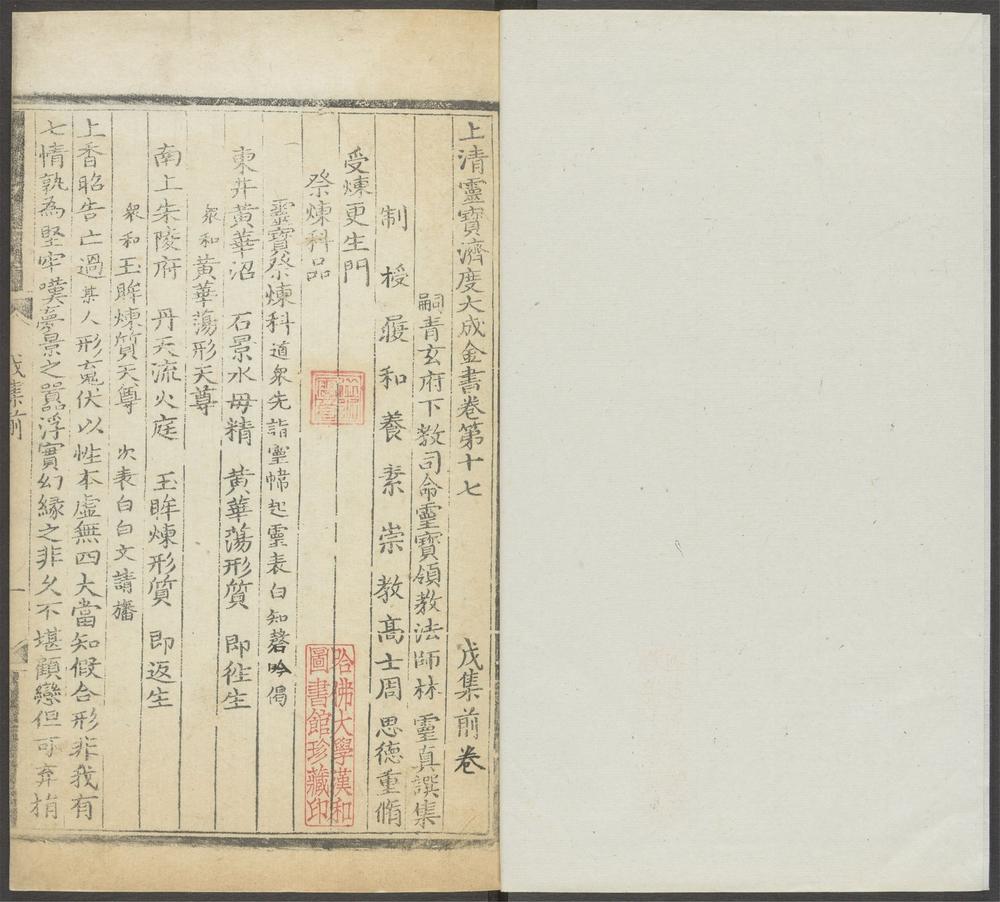 上清靈寶濟度大成金書卷第十七 戊集前卷
嗣青玄府下教司命靈寶領教法師林 靈真譔集
制授履和養素崇教高士周 思德重脩
受煉更生門
祭煉科品
哈佛大學漢和
圖書館珍藏印
靈寶祭煉科 道衆先詣靈幃起靈表白知磬吟偈
東井黃華沼 石景水母精 黃華蕩形質 即徃生
衆和黃華蕩形天尊
南上朱陵府 丹天流火庭 玉眸煉形質 即返生
衆和玉眸煉質天尊 次表白白文請旛
上香昭告亡過某人形䰟伏以性本虛無四大當知假合形非我有
七情孰為堅牢嘆夢景之嚣浮實幻緣之非久不堪顧戀但可弃捐
戊集前
一